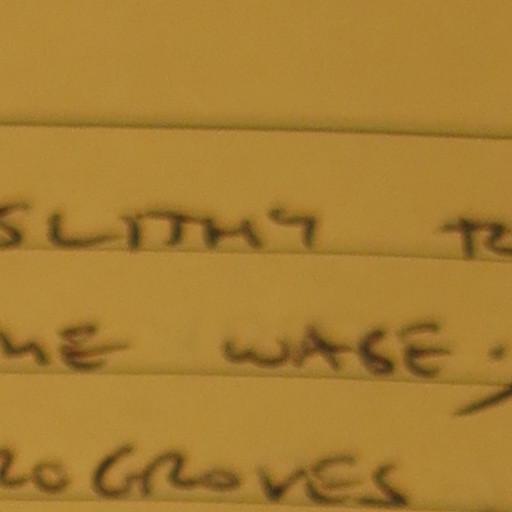 SLITHY TO
ME WABE.
ROGROVES